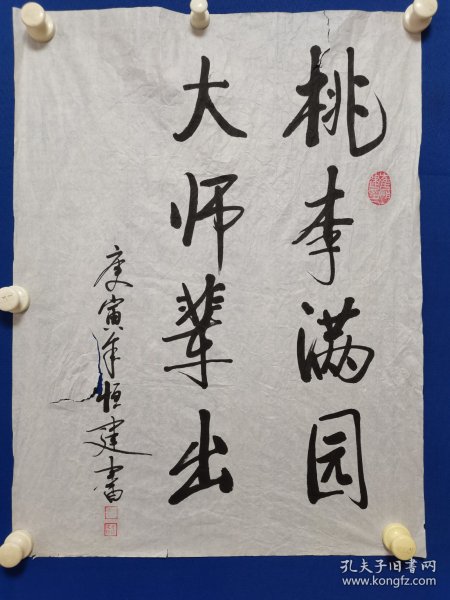 桃李满园
大师辈出
庚寅年恒建书
孔夫子旧书网
www.kongfz.com